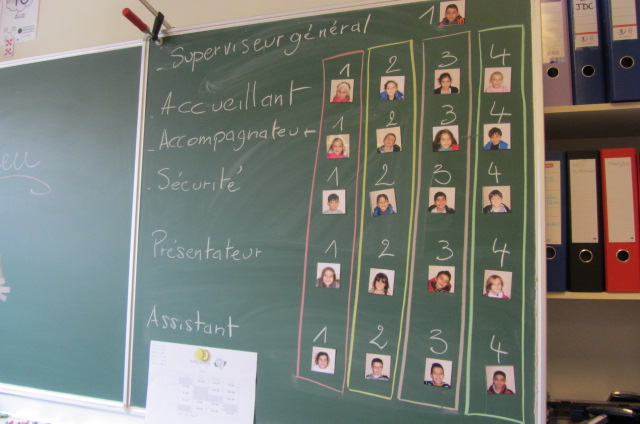 Superviseur général 1
1 2 3 4
Accueillant
1 2 3 4
Accompagnateur
1 2 3 4
Sécurité
1 2 3 4
Présentateur
1 2 3 4
Assistant
JDC